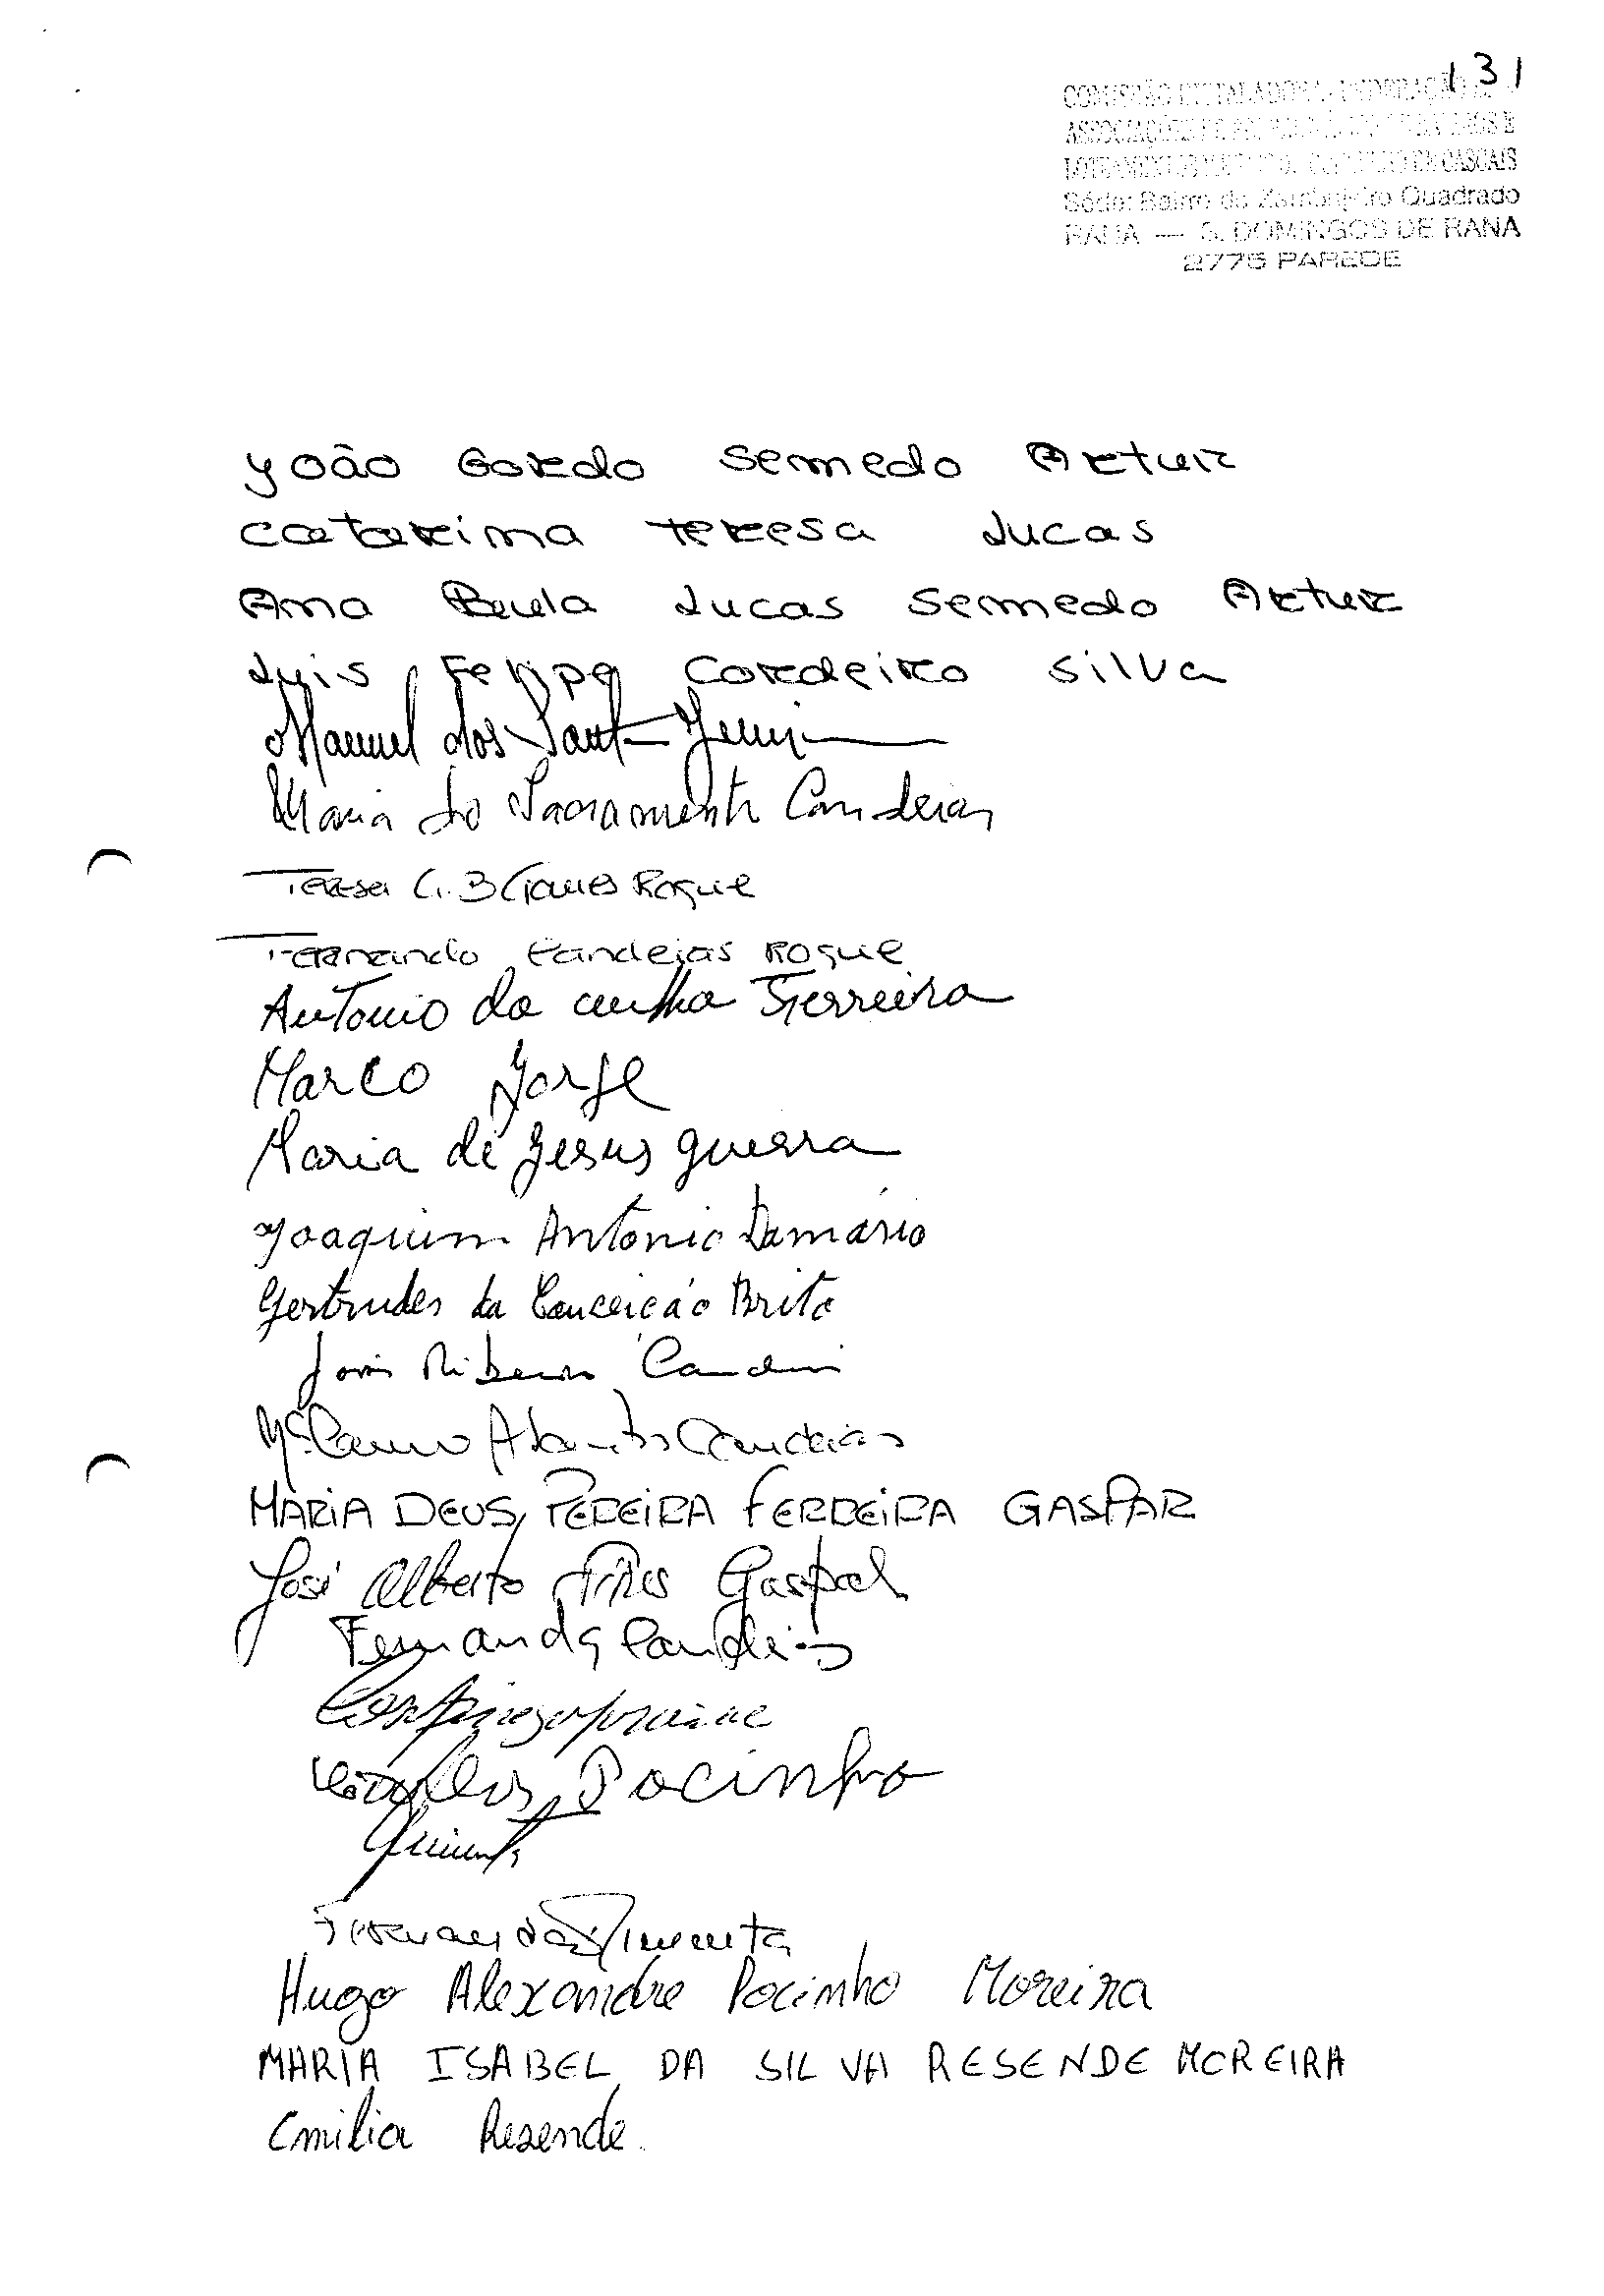 131
COMISSÃO INSTALADORA FEDERAÇÃO
ASSOCIAÇÕES DE E
CASCAIS
Séde: Bairro do Zambujeiro Quadrado
RANA — S. DOMINGOS DE RANA
2775 PAREDE
João Gordo Semedo Artur
Catarina Teresa Lucas
Ana Paula Lucas Semedo Artur
Luis Felipe Cordeiro Silva
Manuel dos Santos
Maria do Sacramento Candeias
Teresa G. B Roque
Fernando Candeias Roque
Antonio da cunha Ferreira
Marco Jorge
Maria de Jesus guerra
Joaquim Antonio Damásio
Gertrudes da Conceição Brito
Ribeiro
Mª Candeias
MARIA DEUS PEREIRA FERREIRA GASPAR
José Alberto Pires Gaspar
Fernanda Candeias
Carlos Pocinho
Fernanda Pimenta
Hugo Alexandre Pocinho Moreira
MARIA ISABEL DA SILVA RESENDE MOREIRA
Emilia Resende.